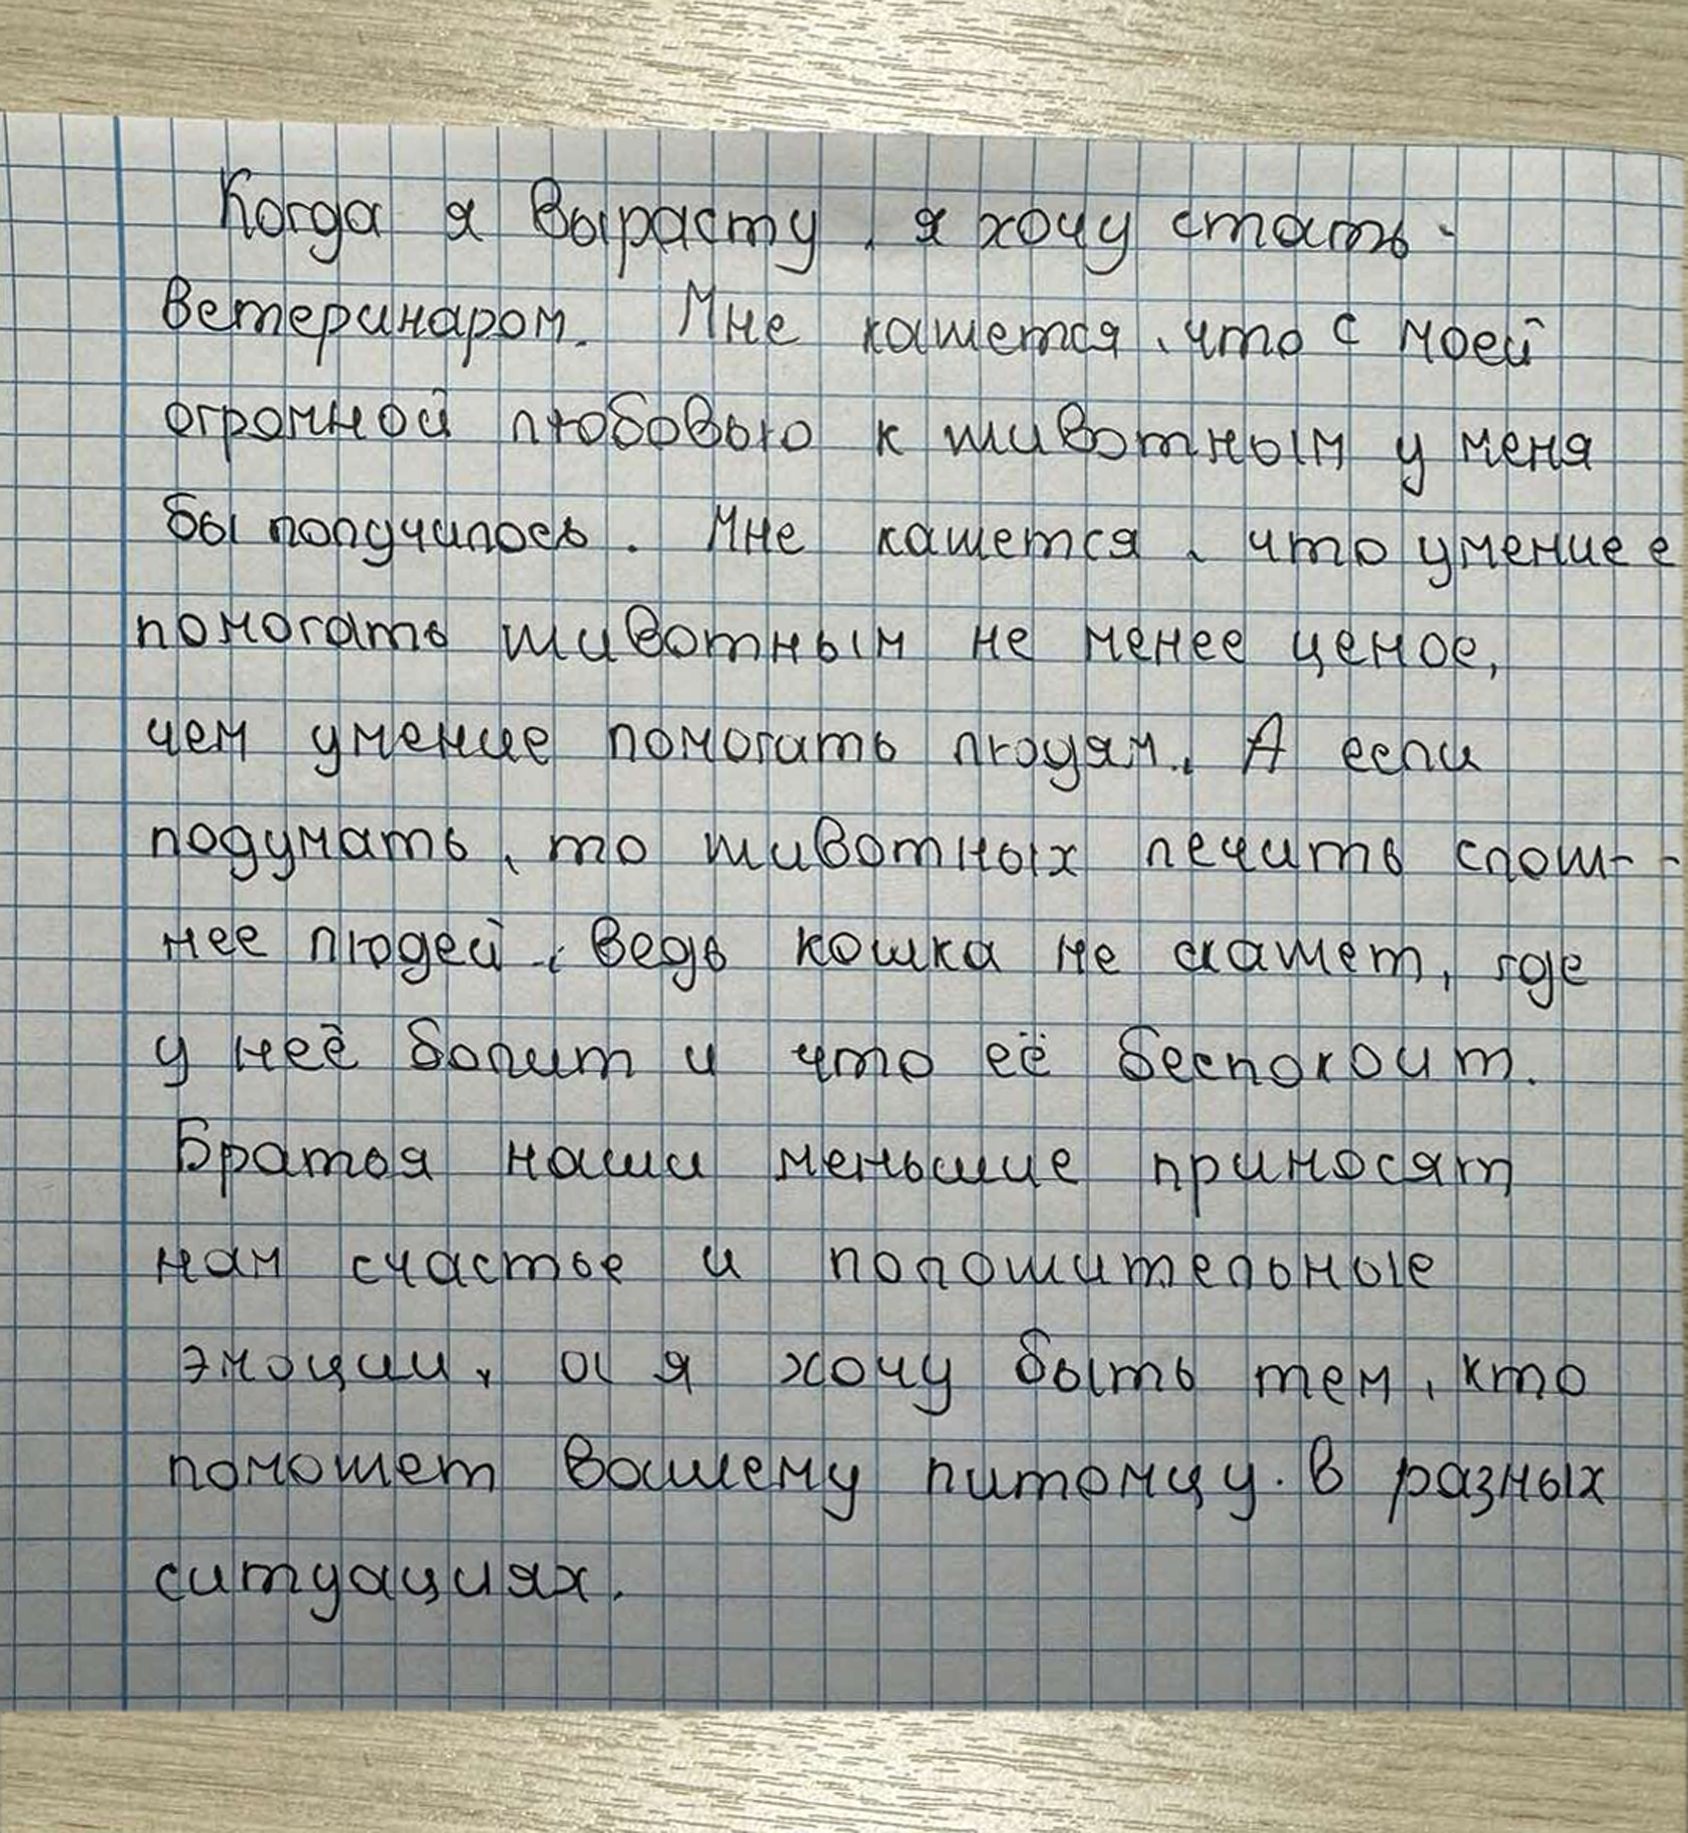 Когда я вырасту, я хочу стать
ветеринаром. Мне кажется, что с моей
огромной любовью к животным у меня
бы получилось. Мне кажется, что умение е
помогать животным не менее ценое,
чем умение помогать людям. А если
подумать, то животных лечить слож-
нее людей, ведь кошка не скажет, где
у неё болит и что её беспокоит.
Братья наши меньшие приносят
нам счастье и положительные
эмоции, а я хочу быть тем, кто
поможет вашему питомцу. в разных
ситуациях.